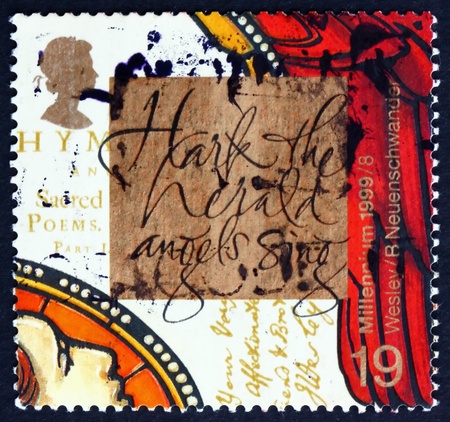 HYM
AN
Sacred
POEMS.
PART I
Hark the
herald
angels sing
Your
Affectionate
Friend & Brot
Millennium 1999/8
Wesley/B Neuenschwander
19